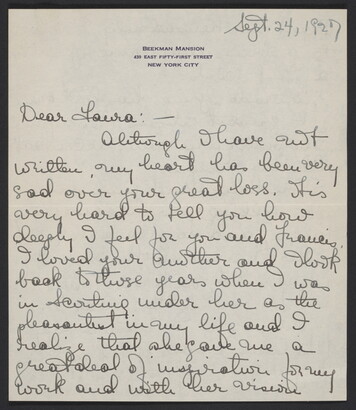 Sept. 24, 1927
BEEKMAN MANSION
439 EAST FIFTY-FIRST STREET
NEW YORK CITY
Dear Laura: —
Although I have not
written, my heart has been very
sad over your great loss. It is
very hard to tell you how
deeply I feel for you and Francis.
I loved your mother and I look
back to those years when I was
in Scouting under her as the
pleasantest in my life and I
realize that she gave me a
great deal of inspiration for my
work and with her vision